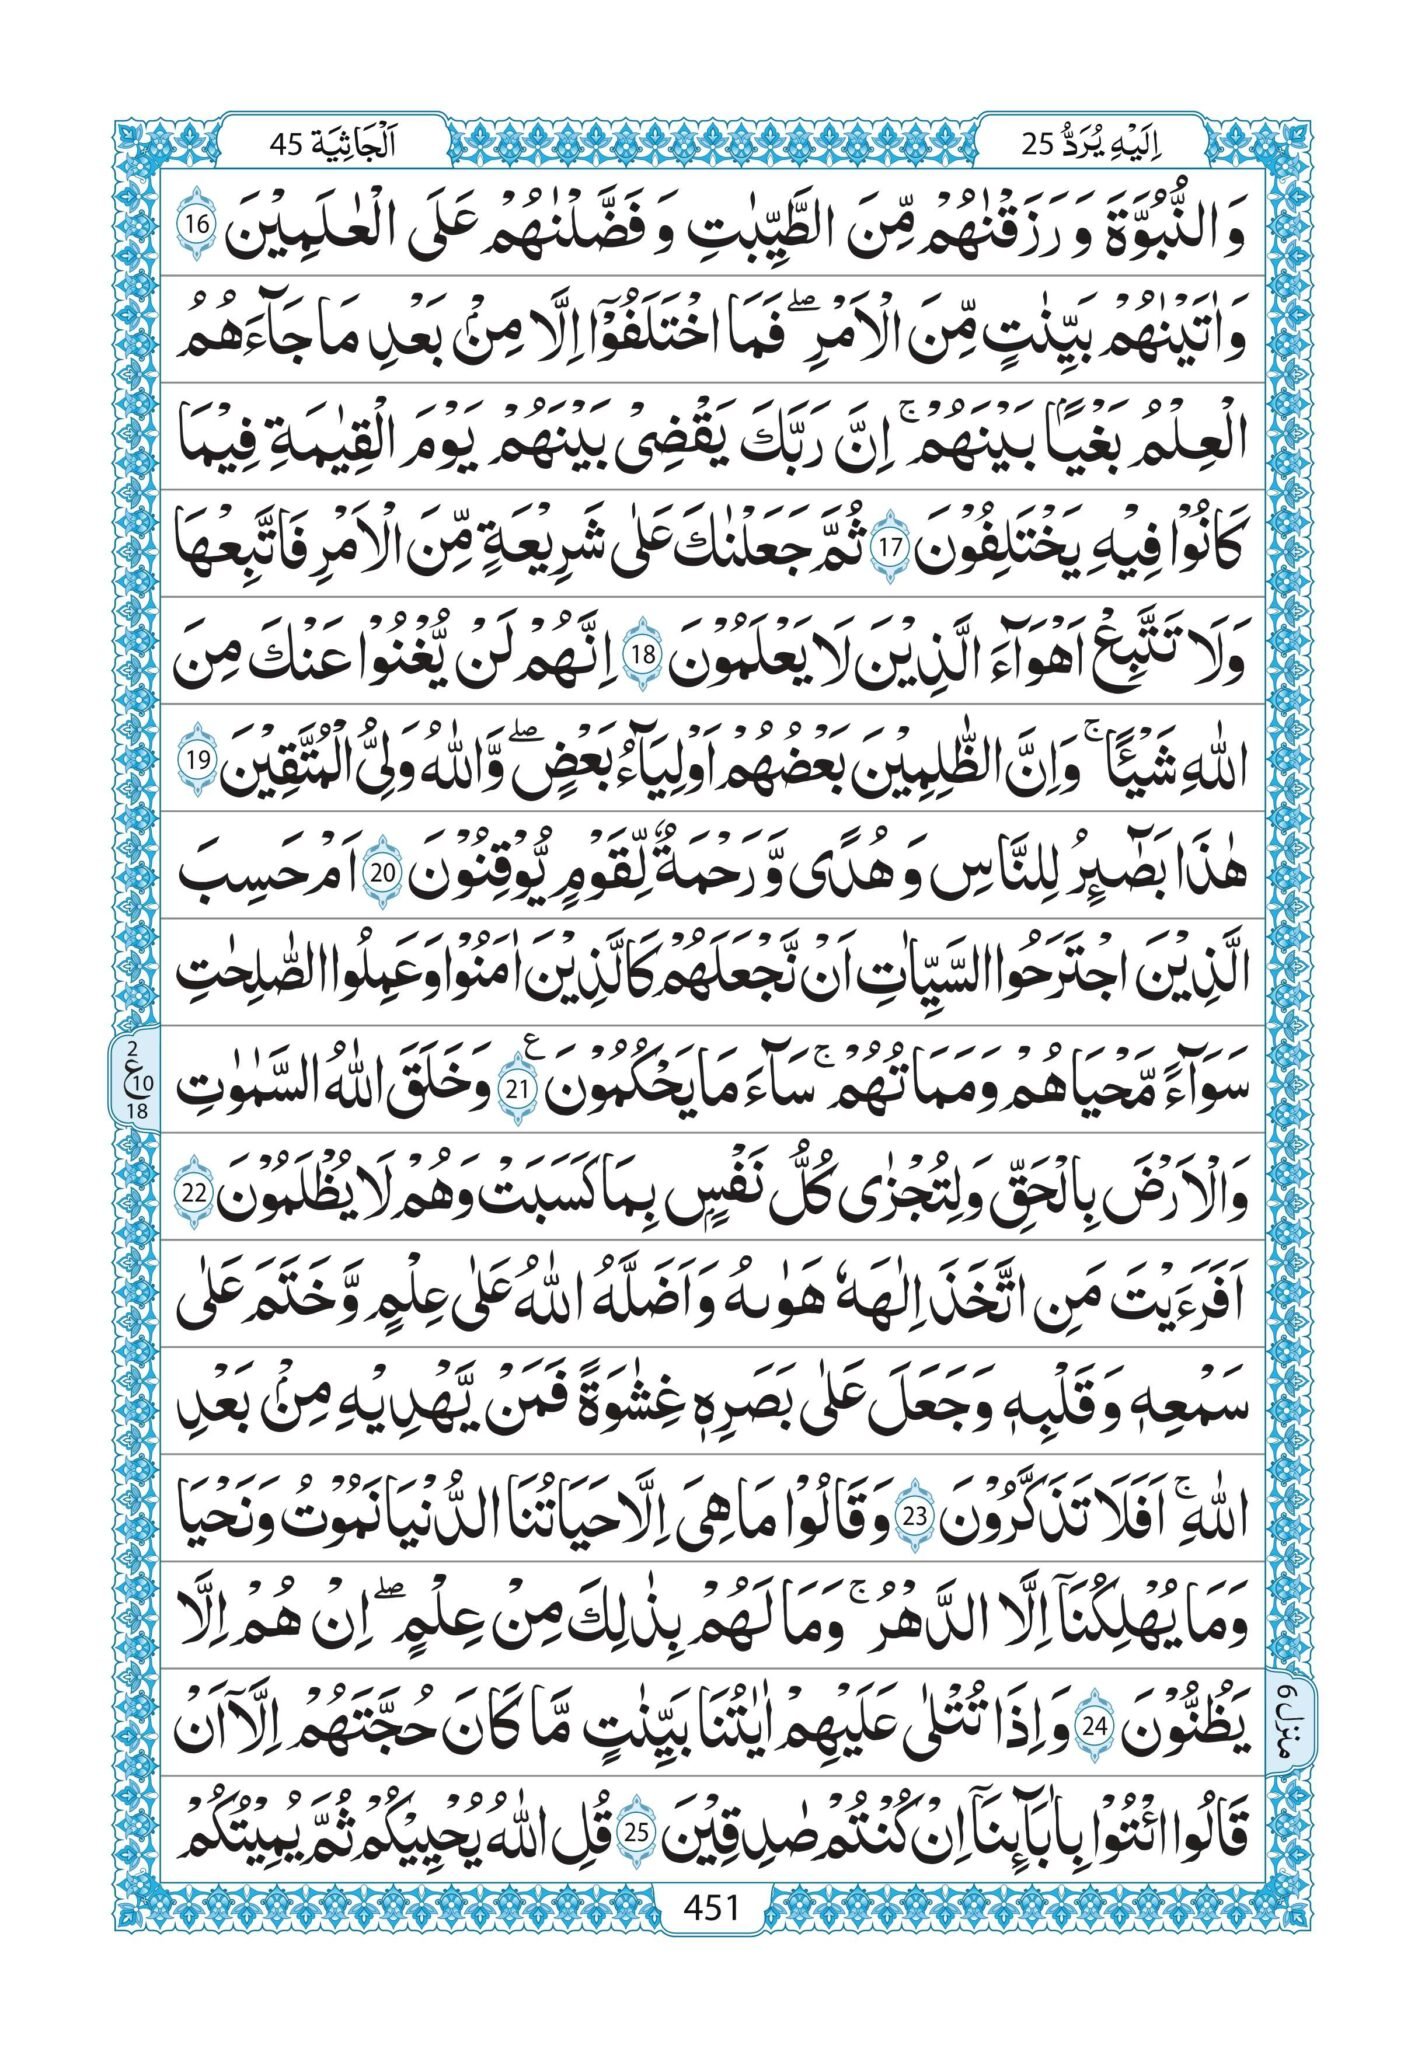 اِلَيْهِ يُرَدُّ 25
اَلْجَاثِيَة 45
وَالنُّبُوَّةَ وَرَزَقْنٰهُمْ مِّنَ الطَّيِّبٰتِ وَفَضَّلْنٰهُمْ عَلَى الْعٰلَمِيْنَ 16
وَاٰتَيْنٰهُمْ بَيِّنٰتٍ مِّنَ الْاَمْرِ ۖ فَمَا اخْتَلَفُوْۤا اِلَّا مِنْۢ بَعْدِ مَا جَآءَهُمُ
الْعِلْمُ بَغْيًاۢ بَيْنَهُمْ ۚ اِنَّ رَبَّكَ يَقْضِىْ بَيْنَهُمْ يَوْمَ الْقِيٰمَةِ فِيْمَا
كَانُوْا فِيْهِ يَخْتَلِفُوْنَ 17 ثُمَّ جَعَلْنٰكَ عَلٰى شَرِيْعَةٍ مِّنَ الْاَمْرِ فَاتَّبِعْهَا
وَلَا تَتَّبِعْ اَهْوَآءَ الَّذِيْنَ لَا يَعْلَمُوْنَ 18 اِنَّهُمْ لَنْ يُّغْنُوْا عَنْكَ مِنَ
اللّٰهِ شَيْـًٔا ۚ وَاِنَّ الظّٰلِمِيْنَ بَعْضُهُمْ اَوْلِيَآءُ بَعْضٍ ۖ وَّاللّٰهُ وَلِىُّ الْمُتَّقِيْنَ 19
هٰذَا بَصَآئِرُ لِلنَّاسِ وَهُدًى وَّرَحْمَةٌ لِّقَوْمٍ يُّوْقِنُوْنَ 20 اَمْ حَسِبَ
الَّذِيْنَ اجْتَرَحُوا السَّيِّاٰتِ اَنْ نَّجْعَلَهُمْ كَالَّذِيْنَ اٰمَنُوْا وَعَمِلُوا الصّٰلِحٰتِ
سَوَآءً مَّحْيَاهُمْ وَمَمَاتُهُمْ ۚ سَآءَ مَا يَحْكُمُوْنَ 21 ع وَخَلَقَ اللّٰهُ السَّمٰوٰتِ
2 ع 10 18
وَالْاَرْضَ بِالْحَقِّ وَلِتُجْزٰى كُلُّ نَفْسٍۭ بِمَا كَسَبَتْ وَهُمْ لَا يُظْلَمُوْنَ 22
اَفَرَءَيْتَ مَنِ اتَّخَذَ اِلٰهَهٗ هَوٰىهُ وَاَضَلَّهُ اللّٰهُ عَلٰى عِلْمٍ وَّخَتَمَ عَلٰى
سَمْعِهٖ وَقَلْبِهٖ وَجَعَلَ عَلٰى بَصَرِهٖ غِشٰوَةً فَمَنْ يَّهْدِيْهِ مِنْۢ بَعْدِ
اللّٰهِ ۚ اَفَلَا تَذَكَّرُوْنَ 23 وَقَالُوْا مَا هِىَ اِلَّا حَيَاتُنَا الدُّنْيَا نَمُوْتُ وَنَحْيَا
وَمَا يُهْلِكُنَاۤ اِلَّا الدَّهْرُ ۚ وَمَا لَهُمْ بِذٰلِكَ مِنْ عِلْمٍ ۖ اِنْ هُمْ اِلَّا
يَظُنُّوْنَ 24 وَاِذَا تُتْلٰى عَلَيْهِمْ اٰيٰتُنَا بَيِّنٰتٍ مَّا كَانَ حُجَّتَهُمْ اِلَّاۤ اَنْ
منزل 6
قَالُوا ائْتُوْا بِاٰبَآئِنَاۤ اِنْ كُنْتُمْ صٰدِقِيْنَ 25 قُلِ اللّٰهُ يُحْيِيْكُمْ ثُمَّ يُمِيْتُكُمْ
451